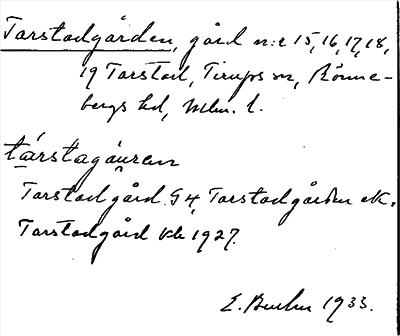 Tarstadgården, gård n:r 15, 16, 17, 18,
19 Tarstad, Tirups sn, Rönne-
bergs hd, Mlm. l.
társtagáuren
Tarstad gård G4, Tarstadgården ek.
Tarstadgård kk 1927.
E. 1933.